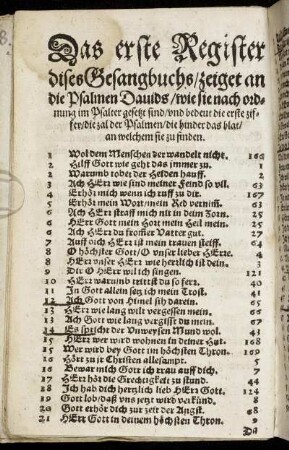 Das erste Register
dises Gesangbuchs/zeiget an
die Psalmen Dauids/wie sie nach ord-
nung im Psalter gesetzt sind/vnd bedeut die erste zif-
fer/die zal der Psalmen/die hinder das blat/
an welchem sie zu finden.
1 Wol dem Menschen der wandelt nicht. 166
1 Hilff Gott wie geht das immer zu. 1
2 Warumb tobet der Heiden hauff. 2
3 Ach HErr wie sind meiner Feind so vil. 63
4 Erhör mich wenn ich ruff zu dir. 167
5 Erhör mein Wort/mein Red vernim. 63
6 Ach HErr straff mich nit in deim Zorn. 25
6 HErr Gott mein Hort mein Heil mein. 25
6 Ach HErr du fromer Vatter gut. 27
7 Auff dich HErr ist mein trauen steiff. 64
8 O höchster Gott/O vnser lieber HErre. 4
8 HErr vnser HErr wie herrlich ist dein. 3
9 Dir O HErr wil ich singen. 121
10 HErr warumb trittst du so fern. 40
11 In Gott allein setz ich mein Trost. 41
12 Ach Gott von Himel sih darein. 65
13 HErr wie lang wilt vergessen mein. 66
13 Ach Gott wie lang vergissst du mein. 67
14 Es spricht der Vnweysen Mund wol. 41
15 HErr wer wird wohnen in deiner Hut. 168
15 Wer wird bey Gott im höchsten Thron. 169
16 Hört zu jr Christen allesampt. 5
16 Bewar mich Gott ich trau auff dich. 7
17 HErr hör die Grechtigkeit zu stund. 44
18 Ich hab dich hertzlich lieb HErr Gott. 124
19 Gott lob/daß vns jetzt wird verkünd. 8
20 Gott erhör dich zur zeit der Angst. 68
21 HErr Gott in deinem höchsten Thron. 9